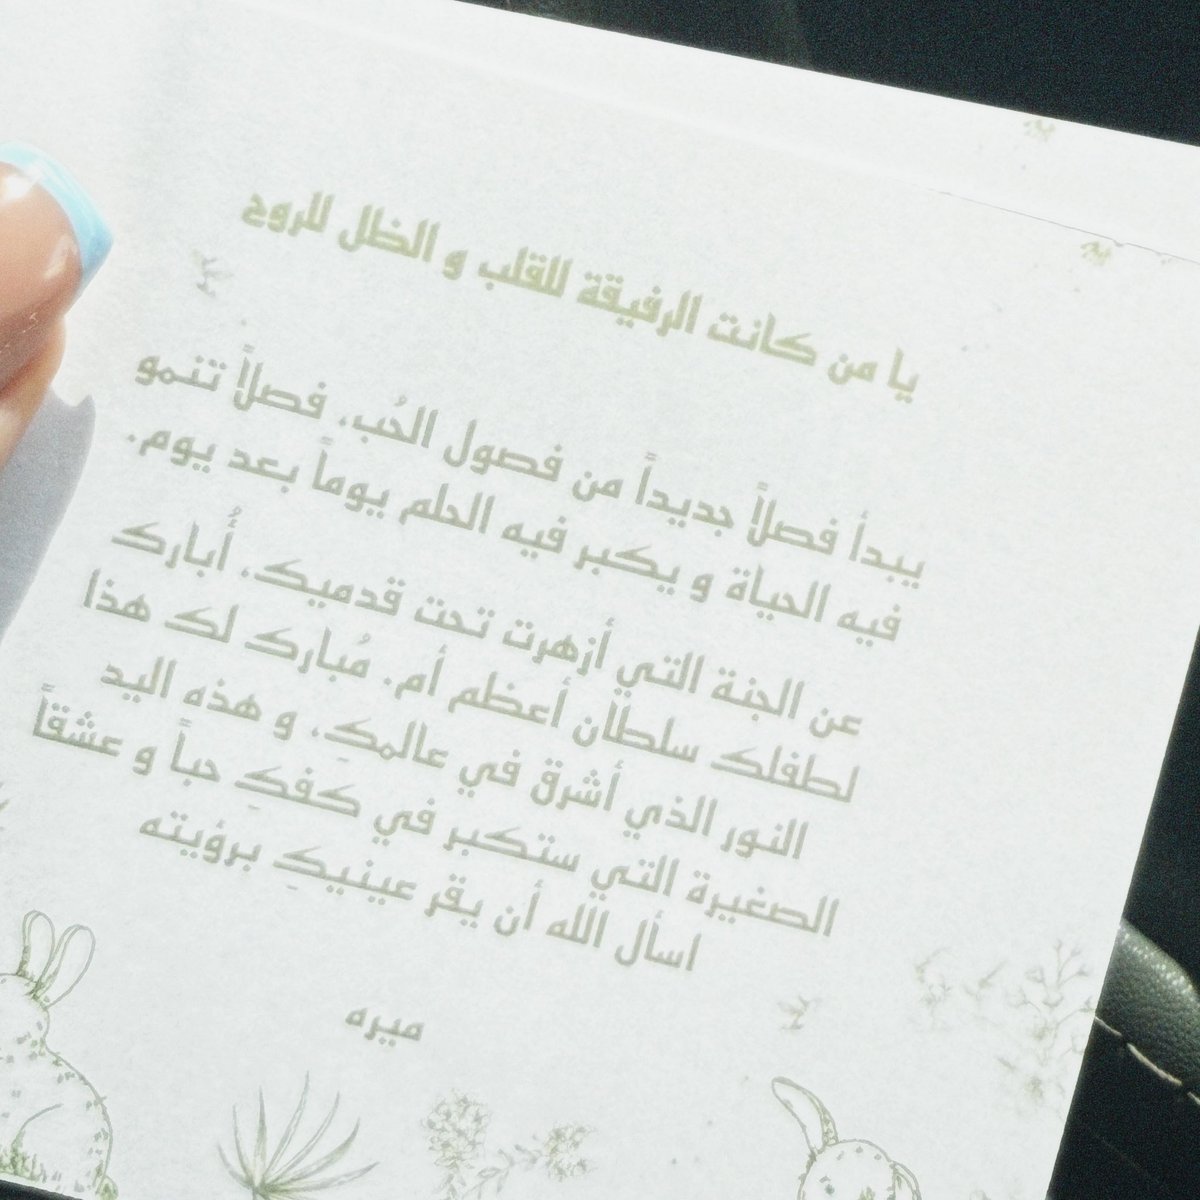 يا من كانت الرفيقة للقلب و الظل للروح
يبدأ فصلاً جديداً من فصول الحُب، فصلاً تنمو
فيه الحياة و يكبر فيه الحلم يوماً بعد يوم.
عن الجنة التي أزهرت تحت قدميك، أُبارك
لطفلك سلطان أعظم أم. مُبارك لك هذا
النور الذي أشرق في عالمكِ، و هذه اليد
الصغيرة التي ستكبر في كفكِ حباً و عشقاً
اسأل الله أن يقر عينيكِ برؤيته
ميره